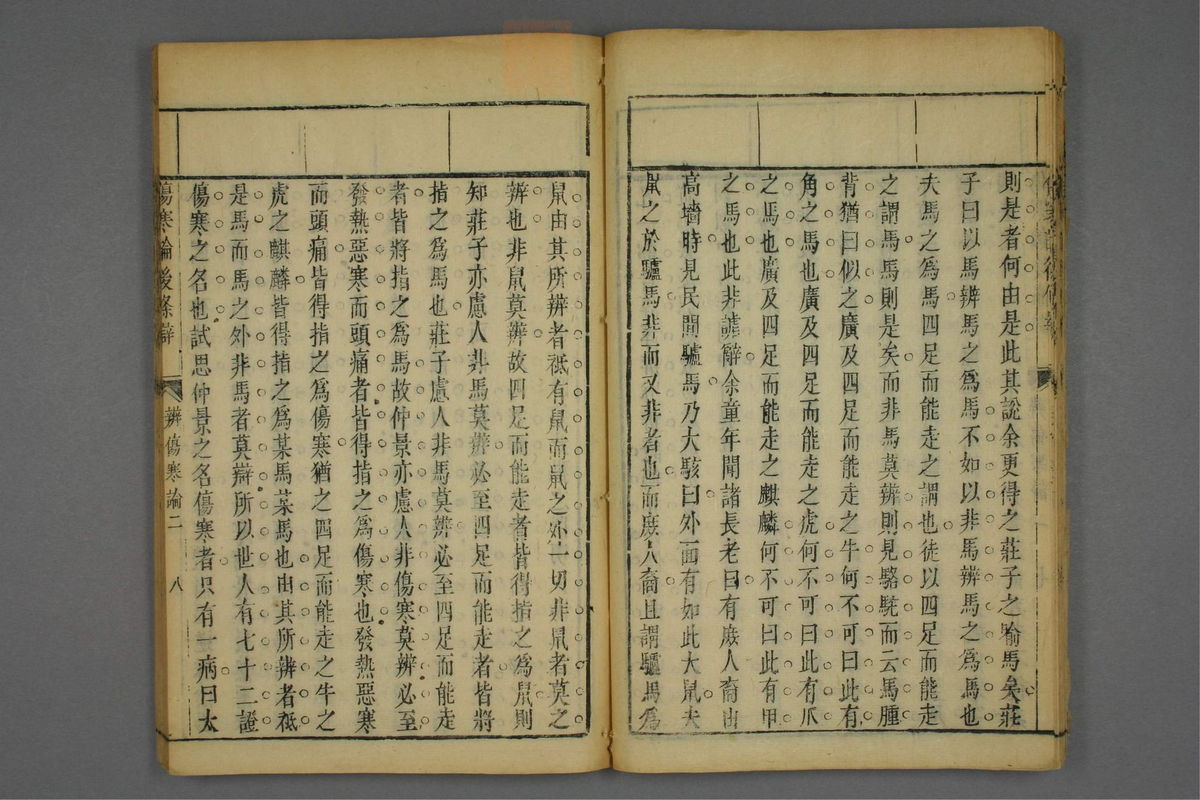 則是者何由是此其說余更得之莊子之喻馬矣莊
子曰以馬辨馬之爲馬不如以非馬辨馬之爲馬也
夫馬之爲馬四足而能走之謂也徒以四足而能走
之謂馬馬則是矣而非馬莫辨則見駱駝而云馬腫
背猶曰似之廣及四足而能走之牛何不可曰此有
角之馬也廣及四足而能走之虎何不可曰此有爪
之馬也廣及四足而能走之麒麟何不可曰此有甲
之馬也此非謔辭余童年聞諸長老曰有宬人裔由
高墻時見民間驢馬乃大駭曰外面有如此大鼠夫
鼠之於驢馬非而又非者也而宬人裔且謂驢馬爲
鼠由其所辨者祗有鼠而鼠之外一切非鼠者莫之
辨也非鼠莫辨故四足而能走者皆得指之爲鼠則
知莊子亦慮人非馬莫辨必至四足而能走者皆將
指之爲馬也莊子慮人非馬莫辨必至四足而能走
者皆將指之爲馬故仲景亦慮人非傷寒莫辨必至
發熱惡寒而頭痛者皆得指之爲傷寒也發熱惡寒
而頭痛皆得指之爲傷寒猶之四足而能走之牛之
虎之麒麟皆得指之爲某馬某馬也由其所辨者祗
是馬而馬之外非馬者莫辯所以世人有七十二證
傷寒之名也試思仲景之名傷寒者只有一病曰太
傷寒論後條辯
辨傷寒論二
八